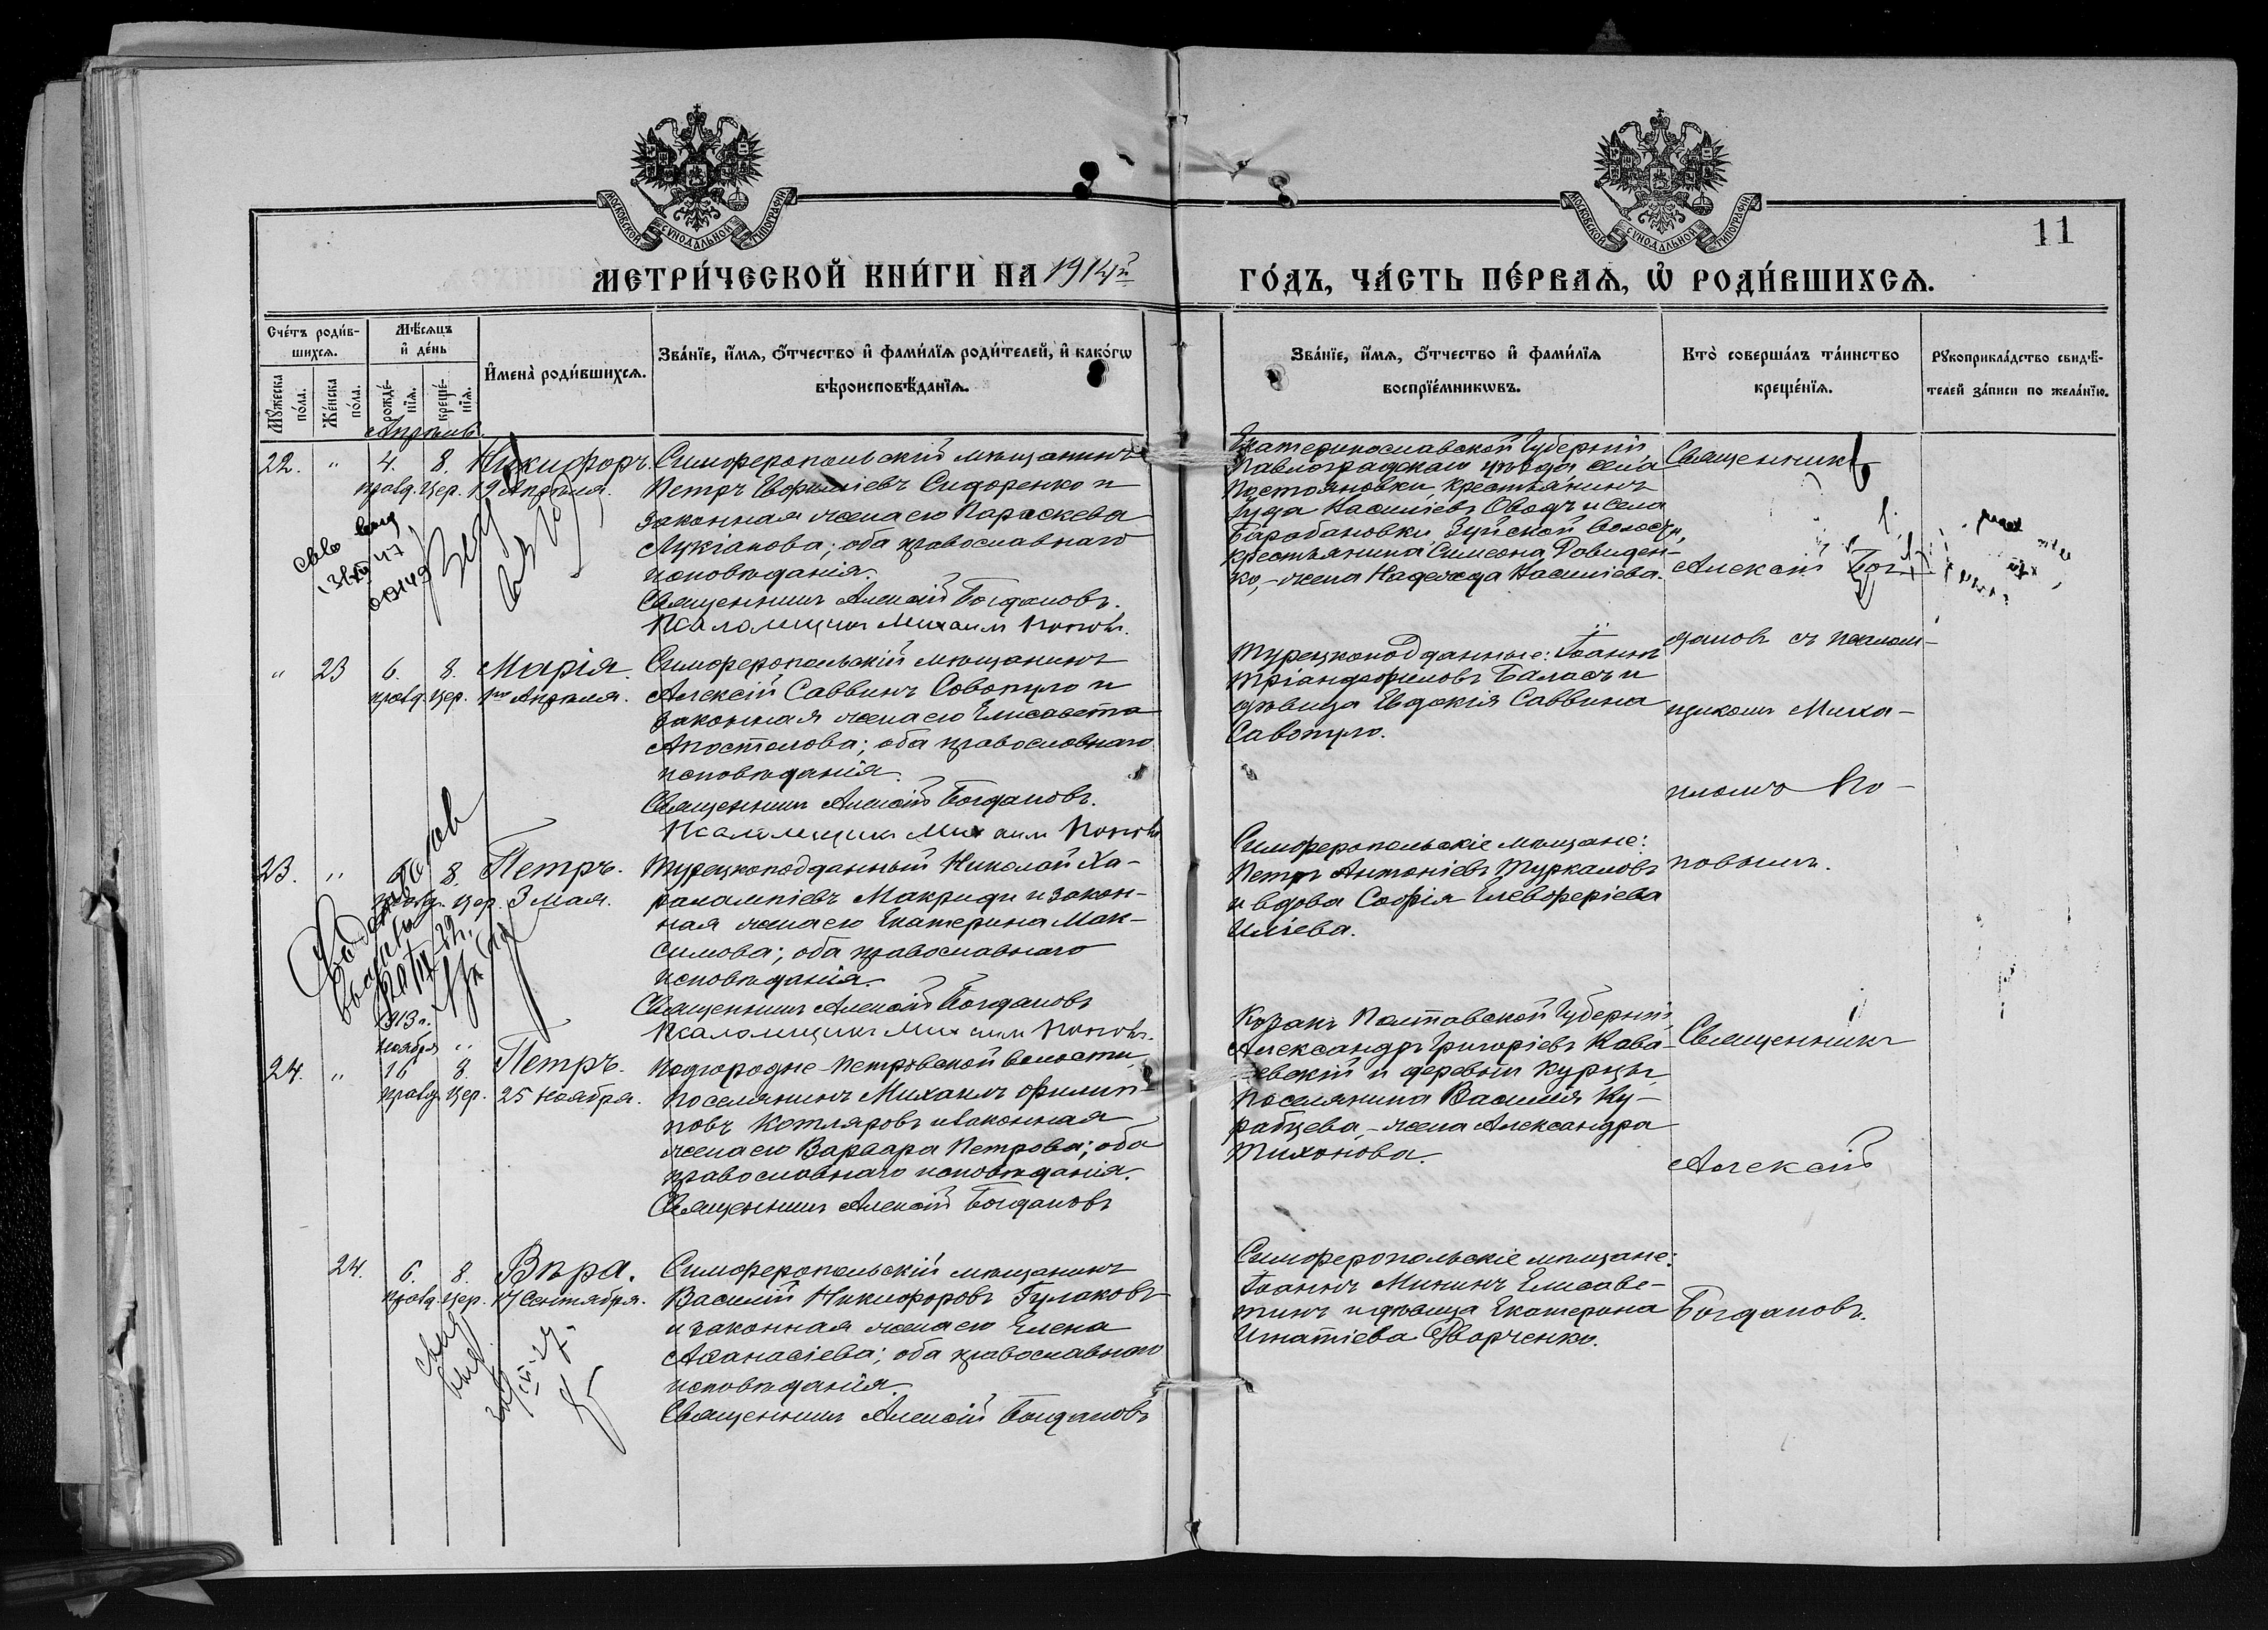 МОСКОВСКОЙ СѴНОДАЛЬНОЙ ТИПОГРАФІИ
МОСКОВСКОЙ СѴНОДАЛЬНОЙ ТИПОГРАФІИ
11
МЕТРИ́ЧЕСКОЙ КНИ́ГИ НА 1914й
ГО́ДЪ, ЧА́СТЬ ПЕ́РВАѦ, Ѽ РОДИ́ВШИХСѦ.
Сче́тъ роди́в-
шихсѧ.
Мꙋ́жеска по́ла.
Же́нска по́ла.
Мѣ́сѧцъ
и҆ де́нь
рожде́-
нїѧ.
креще́-
нїѧ.
И҆мена̀ роди́вшихсѧ.
Зва́нїе, и҆́мѧ, ѻ҆́тчество и҆ фами́лїѧ роди́телей, и҆ како́гѡ
вѣроисповѣ́данїѧ.
Зва́нїе, и҆́мѧ, ѻ҆́тчество и҆ фами́лїѧ
воспрїе́мникѡвъ.
Кто̀ соверша́лъ та́инство
креще́нїѧ.
Рꙋкоприкла́дство свидѣ́-
телей за́писи по жела́нїю.
Апрѣль.
22. " 4. 8. Никифоръ.
правд. цер. 19 Апрѣля.
Симферопольскій мѣщанинъ
Петръ Евфиміевъ Сидоренко и
законная жена его Параскева
Лукіанова; оба православнаго
исповѣданія.
Священникъ Алексій Богдановъ.
Псаломщикъ Михаилъ Поповъ.
Екатеринославской Губерніи,
Павлоградскаго уѣзда села
Постояновки, крестьянинъ
Іуда Василіевъ Оводъ и села
Барабановки, Зуйской волости,
крестьянина Симеона Давиден-
ко, - жена Надежда Василіева.
Священникъ
Алексій Бог-
дановъ съ псалом-
щикомъ Миха-
иломъ По-
повымъ.
" 23 6. 8. Марія.
правд. цер. 1го Апрѣля.
Симферопольскій мѣщанинъ
Алексій Саввинъ Савопуло и
законная жена его Елисавета
Апостолова; оба православнаго
исповѣданія.
Священникъ Алексій Богдановъ.
Псаломщикъ Михаилъ Поповъ
Турецкоподданные: Іоаннъ
Тріандафиловъ Баласъ и
дѣвица Евдокія Саввина
Савопуло.
23. " 8. Петръ.
правд. цер. 3 Мая.
Турецкоподданный Николай Ха-
ралампіевъ Макриди и закон-
ная жена его Екатерина Мак-
симова; оба православнаго
исповѣданія.
Священникъ Алексій Богдановъ
Псаломщикъ Михаилъ Поповъ.
Симферопольскіе мѣщане:
Петръ Антоніевъ Туркаловъ
и вдова Софія Елевферіева
Иліева.
1913 г.
Ноября "
24. " 16 8. Петръ.
правд. цер. 25 Ноября.
Подгородне-Петровской волости,
поселянинъ Михаилъ Филип-
повъ Котляровъ и законная
жена его Варвара Петрова; оба
православнаго исповѣданія.
Священникъ Алексій Богдановъ
Козакъ Полтавской Губерніи,
Александръ Григоріевъ Кова-
левскій и деревни Курцы,
поселянина Василія Ку-
рабцева, - жена Александра
Тихонова.
Священникъ
Алексій
Богдановъ.
24. 6. 8. Вѣра.
правд. цер. 17 Сентября.
Симферопольскій мѣщанинъ
Василій Никифоровъ Гулаковъ
и законная жена его Елена
Аѳанасіева; оба православнаго
исповѣданія.
Священникъ Алексій Богдановъ
Симферопольскіе мѣщане:
Іоаннъ Мининъ Елисаве-
тинъ и дѣвица Екатерина
Игнатіева Дворченко.